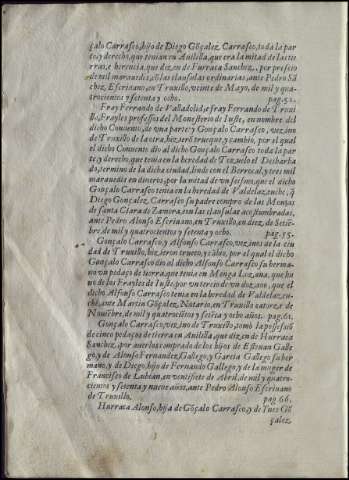 çalo Carrasco, hijo de Diego Gõçalez Carrasco, toda la par
te, y derecho, que tenian en Anililla, que era la mitad de las tie
rras, e herencia, que dizen de Furraca Sanchez, por precio
de mil marauedis, cõ las clausulas ordinarias, ante Pedro Sã
chez, Escriuano, en Truxillo, veinte de Mayo, de mil y qua-
trocientos y setenta y ocho. pag. 52.
Fray Ferrando de Valladolid, e fray Ferrando de Truxi
llo, Frayles professos del Monesterio de Iuste, en nombre del
dicho Conuento, de vna parte: y Gonçalo Carrasco, vezino
de Truxillo de la otra, hizierõ trueque, y cambio, por el qual
el dicho Conuento dio al dicho Gonçalo Carrasco toda la par
te, y derecho, que tenia en la heredad de Tozuelo el Desbarba
do, termino de la dicha ciudad, linde con el Berrocal, y tres mil
marauedis en dineros, por la mitad de vn sesmo, que el dicho
Gonçalo Carrasco tenia en la heredad de Valdelaz euche, q̃
Diego Gonçalez Carrasco su padre compro de las Monjas
de santa Clara de Zamora, con las clausulas acostumbradas,
ante Pedro Alonso Escriuano, en Truxillo, en diez, de Setiẽ-
bre, de mil y quatrocientos y setenta y ocho. pag. 55.
Gonçalo Carrasco, y Alfonso Carrasco, vezinos de la ciu
dad de Truxillo, hizieron trueco, y cãbio, por el qual el dicho
Gonçalo Carrasco dio al dicho Alfonso Carrasco su herma-
no vn pedaço de tierra, que tenia en Monga Loz ana, que hu
uo de los Frayles de Iuste, por vn tercio de vn dozauo, que el
dicho Alfonso Carrasco tenia en la heredad de Valdelaz eu-
che, ante Martin Gõçalez, Notario, en Truxillo catorze de
Nouiẽbre, de mil y quatrociẽtos y setẽta y ocho años. pag. 61.
Gonçalo Carrasco, vezino de Truxillo, tomò la possessiõ
de cinco pedaços de tierra en Anililla, que dizen de Hurraca
Sanchez, por auerlos comprado de los hijos de Esteuan Galle
go, y de Alonso Fernandez Gallego, y Garcia Gallego su her
mano, y de Diego, hijo de Fernando Gallego, y de la muger de
Francisco de Lubian, en ventisiete de Abril, de mil y quatro-
cientos y setenta y nueue años, ante Pedro Alonso Escriuano
de Truxillo. pag. 66.
Hurraca Alonso, hija de Gõçalo Carrasco, y de Ines Gõ
çalez,